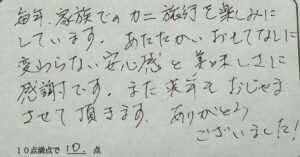 毎年、家族でのカニ旅行を楽しみに
しています。あたたかいおもてなしに
変わらない安心感と美味しさに
感謝です。また来年もおじゃま
させて頂きます。ありがとう
ございました!
10点満点で 10. 点